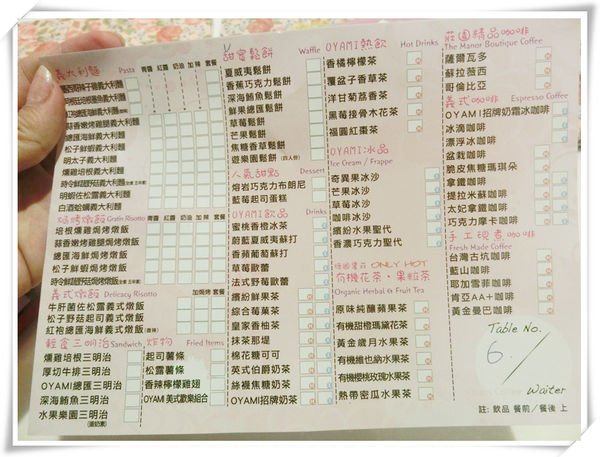 義大利麵 Pasta 青醬 紅醬 奶油 加辣 套餐
蒜香嫩烤雞腿義大利麵
總匯海鮮義大利麵
松子鮮蝦義大利麵
明太子義大利麵
明蝦佐松露義大利麵
白酒蛤蠣義大利麵
焗烤燉飯 Gratin Risotto 青醬 紅醬 奶油 加辣 套餐
培根燻雞焗烤燉飯
蒜香嫩烤雞腿焗烤燉飯
總匯海鮮焗烤燉飯
松子鮮蝦焗烤燉飯
義式燉飯 Delicacy Risotto 加焗烤 套餐
牛肝菌佐松露義式燉飯
松子野菇起司義式燉飯
紅袍總匯海鮮義式燉飯
輕食三明治 Sandwich
燻雞培根三明治
厚切牛排三明治
OYAMI總匯三明治
深海鮪魚三明治
水果樂園三明治
炸物 Fried Items
起司薯條
松露薯條
香辣檸檬雞翅
OYAMI 美式歡樂組合
甜蜜鬆餅 Waffle
夏威夷鬆餅
香蕉巧克力鬆餅
深海鮪魚鬆餅
鮮果總匯鬆餅
草莓鬆餅
芒果鬆餅
焦糖香草鬆餅
遊樂園鬆餅(四人份)
人氣甜點 Dessert
熔岩巧克力布朗尼
藍莓起司蛋糕
OYAMI飲品 Drinks
蜜桃香橙冰茶
蔚藍夏威夷蘇打
香蘋葡萄蘇打
草莓歐蕾
法式野莓歐蕾
繽紛鮮果茶
綜合莓果茶
皇家香柚茶
抹茶那堤
棉花糖可可
英式伯爵奶茶
絲襪焦糖奶茶
OYAMI招牌奶茶
OYAMI熱飲 Hot Drinks
香橘檸檬茶
覆盆子香草茶
洋甘菊荔香茶
黑莓接骨木花茶
福圓紅棗茶
OYAMI冰品
Ice Cream / Frappe
奇異果冰沙
芒果冰沙
草莓冰沙
咖啡冰沙
繽紛水果聖代
香濃巧克力聖代
德國農莊 ONLY HOT
有機花茶、果粒茶
Organic Herbal & Fruit Tea
原味純釀蘋果茶
有機甜橙瑪黛花茶
黃金歲月水果茶
有機維也納水果茶
有機櫻桃玫瑰水果茶
熱帶密瓜水果茶
莊園精品咖啡
The Manor Boutique Coffee
薩爾瓦多
蘇拉薇西
哥倫比亞
義式咖啡 Espresso Coffee
OYAMI招牌奶霜冰咖啡
冰滴咖啡
漂浮冰咖啡
盆栽咖啡
脆皮焦糖瑪琪朵
拿鐵咖啡
提拉米蘇咖啡
太妃拿鐵咖啡
巧克力摩卡咖啡
手工現煮咖啡
Fresh Made Coffee
台灣古坑咖啡
藍山咖啡
耶加雪菲咖啡
肯亞AA+咖啡
黃金曼巴咖啡
Table No.
6
Waiter
註: 飲品 餐前／餐後 上